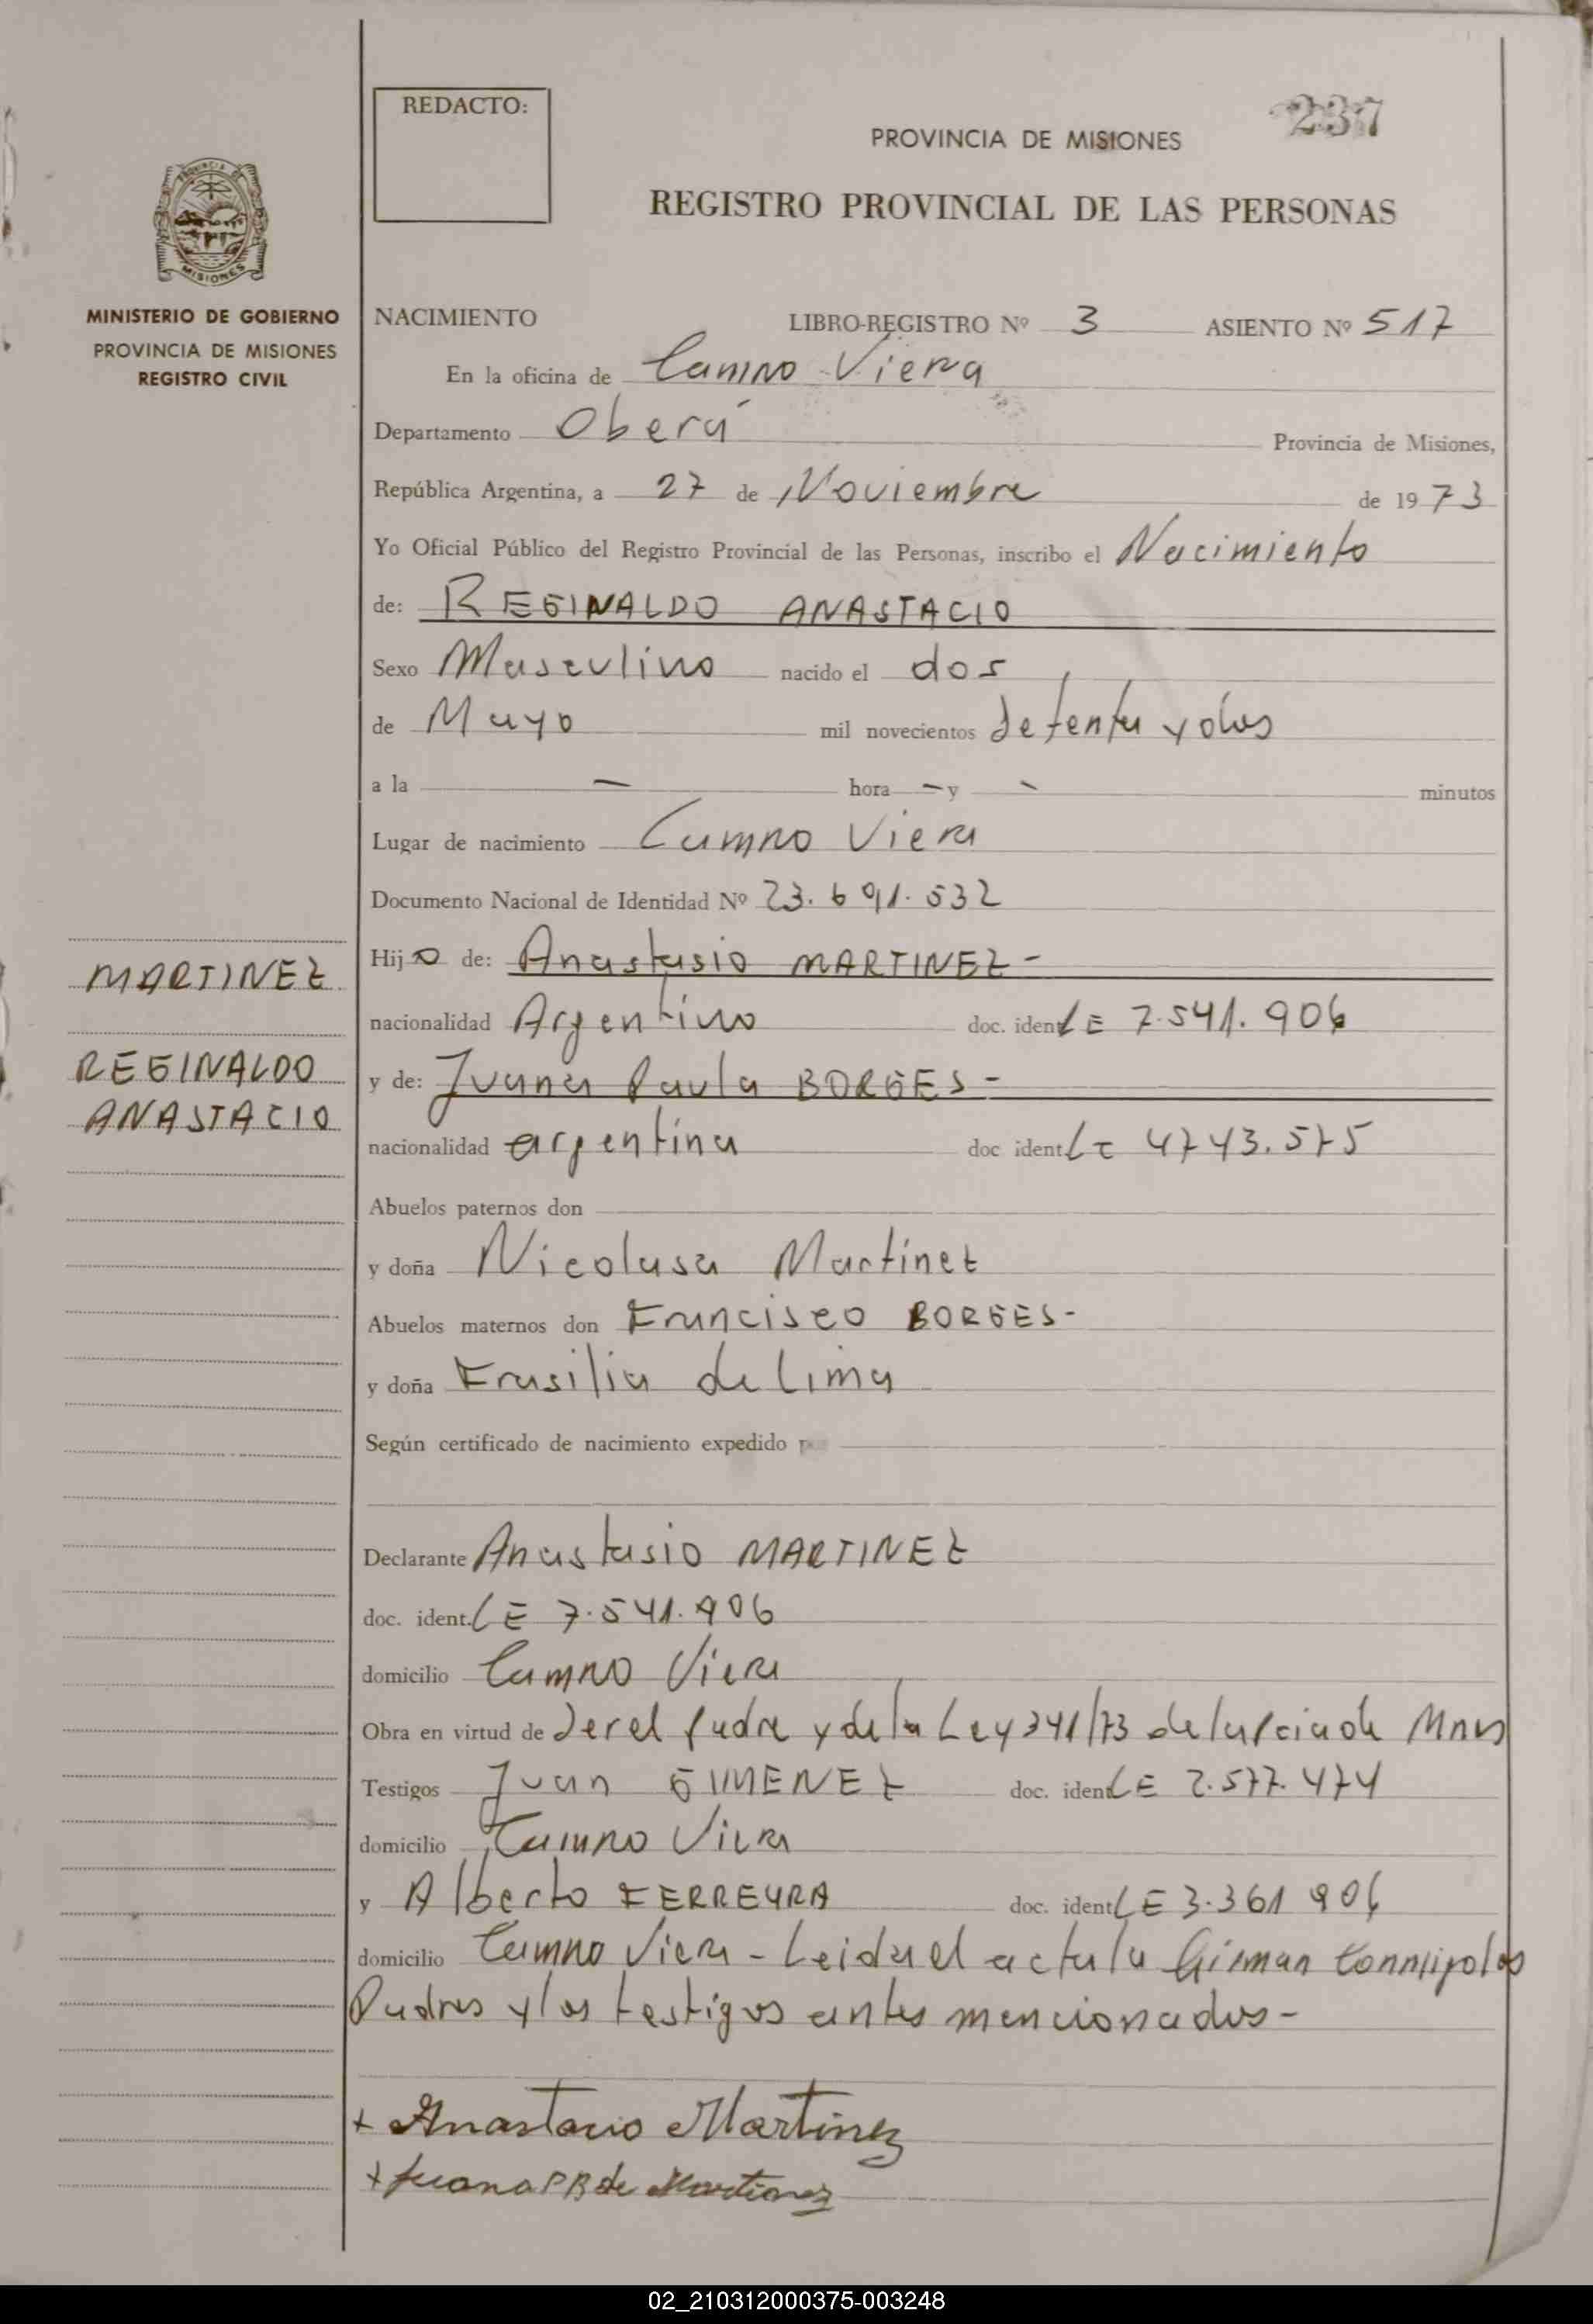 REDACTO:
237
PROVINCIA DE MISIONES
REGISTRO PROVINCIAL DE LAS PERSONAS
PROVINCIA DE
MISIONES
MINISTERIO DE GOBIERNO
PROVINCIA DE MISIONES
REGISTRO CIVIL
NACIMIENTO LIBRO-REGISTRO Nº 3 ASIENTO Nº 517
En la oficina de Campo Viera
Departamento Oberá Provincia de Misiones,
República Argentina, a 27 de Noviembre de 1973
Yo Oficial Público del Registro Provincial de las Personas, inscribo el Nacimiento
de: REGINALDO ANASTACIO
Sexo Masculino nacido el dos
de Mayo mil novecientos setenta y dos
a la — hora — y - minutos
Lugar de nacimiento Campo Viera
Documento Nacional de Identidad Nº 23.691.532
Hijo de: Anastasio MARTINEZ -
nacionalidad Argentino doc. ident LE 7.541.906
y de: Juana Paula BORGES -
nacionalidad argentina doc ident LC 4743.575
MARTINEZ
REGINALDO
ANASTACIO
Abuelos paternos don
y doña Nicolasa Martinez
Abuelos maternos don Francisco BORGES -
y doña Frasilia de Lima
Según certificado de nacimiento expedido
Declarante Anastasio MARTINEZ
doc. ident. LE 7.541.906
domicilio Campo Viera
Obra en virtud de ser el padre y de la Ley 341/73 de la pcia de Mnes
Testigos Juan GIMENEZ doc. ident LE 2.577.474
domicilio Campo Viera
y Alberto FERREYRA doc. ident LE 3.361 906
domicilio Campo Viera - Leida el acta la firman conmigo los
Padres y los testigos antes mencionados -
+ Anastacio Martinez
+ Juana P B de Martinez
02_210312000375-003248